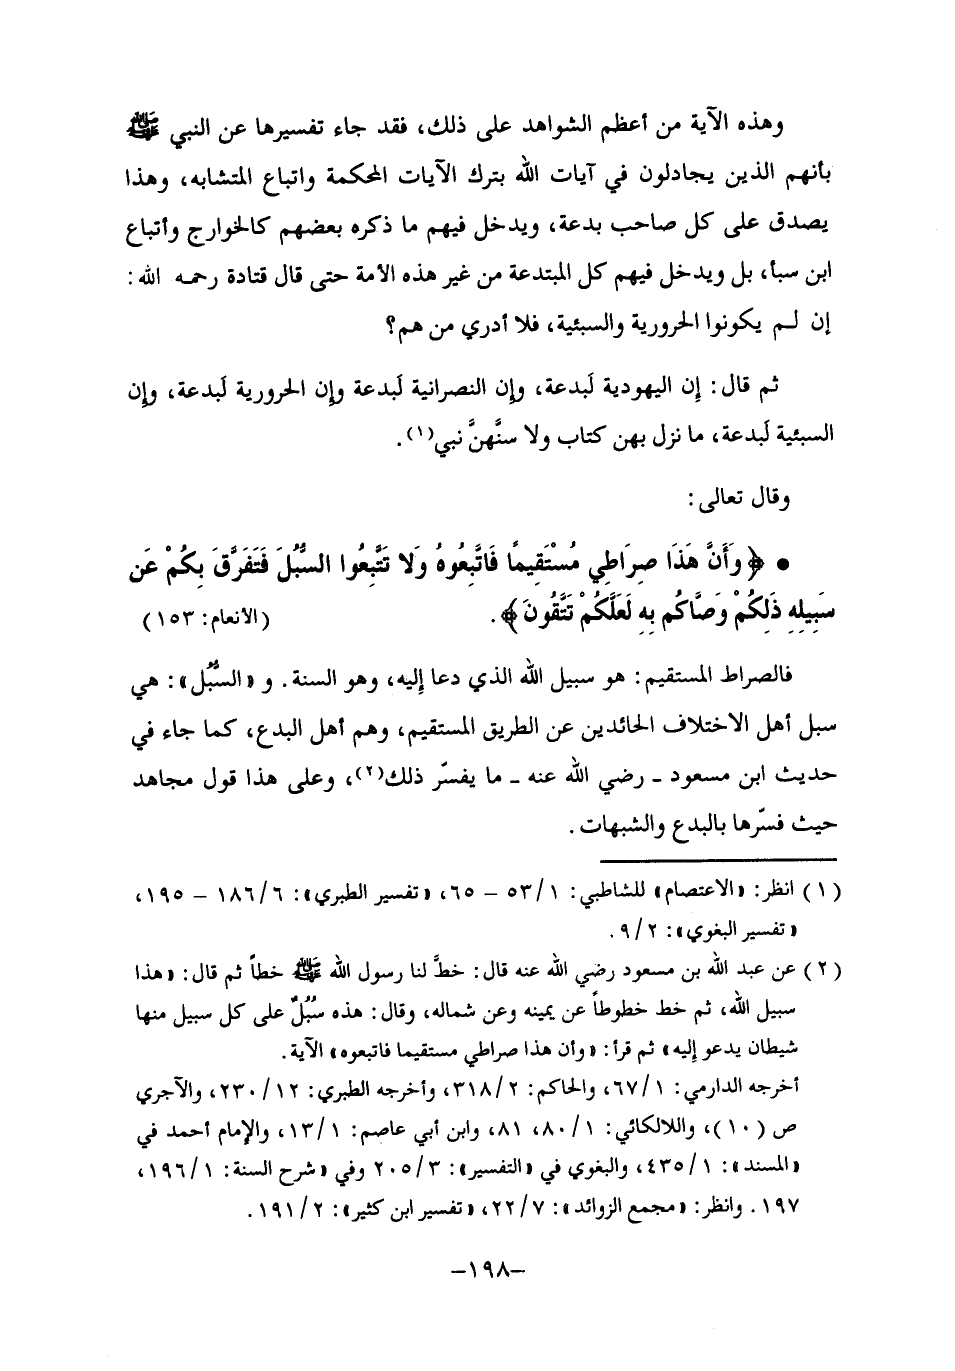 وهذه الآية من أعظم الشواهد على ذلك، فقد جاء تفسيرها عن النبي ﷺ
بأنهم الذين يجادلون في آيات الله بترك الآيات المحكمة واتباع المتشابه، وهذا
يصدق على كل صاحب بدعة، ويدخل فيهم ما ذكره بعضهم كالخوارج وأتباع
ابن سبأ، بل ويدخل فيهم كل المبتدعة من غير هذه الأمة حتى قال قتادة رحمه الله:
إن لم يكونوا الحرورية والسبئية، فلا أدري من هم؟
ثم قال: إن اليهودية لَبدعة، وإن النصرانية لَبدعة وإن الحرورية لَبدعة، وإن
السبئية لَبدعة، ما نزل بهن كتاب ولا سنَّهنَّ نبي(١).
وقال تعالى:
• ﴿وَأَنَّ هَذَا صِرَاطِي مُسْتَقِيمًا فَاتَّبِعُوهُ وَلَا تَتَّبِعُوا السُّبُلَ فَتَفَرَّقَ بِكُمْ عَن
سَبِيلِهِ ذَلِكُمْ وَصَّاكُم بِهِ لَعَلَّكُمْ تَتَّقُونَ﴾. (الأنعام: ١٥٣)
فالصراط المستقيم: هو سبيل الله الذي دعا إليه، وهو السنة. و «السُّبُل»: هي
سبل أهل الاختلاف الحائدين عن الطريق المستقيم، وهم أهل البدع، كما جاء في
حديث ابن مسعود ـ رضي الله عنه ـ ما يفسّر ذلك(٢)، وعلى هذا قول مجاهد
حيث فسّرها بالبدع والشبهات.
(١) انظر: «الاعتصام» للشاطبي: ١/٥٣ – ٦٥، «تفسير الطبري»: ٦/١٨٦ – ١٩٥،
«تفسير البغوي»: ٢/٩.
(٢) عن عبد الله بن مسعود رضي الله عنه قال: خطَّ لنا رسول الله ﷺ خطاً ثم قال: «هذا
سبيل الله، ثم خط خطوطاً عن يمينه وعن شماله، وقال: هذه سُبُلٌ على كل سبيل منها
شيطان يدعو إليه» ثم قرأ: «وأن هذا صراطي مستقيما فاتبعوه» الآية.
أخرجه الدارمي: ١/٦٧، والحاكم: ٢/٣١٨، وأخرجه الطبري: ١٢/٢٣٠، والآجري
ص (١٠)، واللالكائي: ١/٨٠، ٨١، وابن أبي عاصم: ١/١٣، والإمام أحمد في
«المسند»: ١/٤٣٥، والبغوي في «التفسير»: ٣/٢٠٥ وفي «شرح السنة: ١/١٩٦،
١٩٧. وانظر: «مجمع الزوائد»: ٧/٢٢، «تفسير ابن كثير»: ٢/١٩١.
–١٩٨–